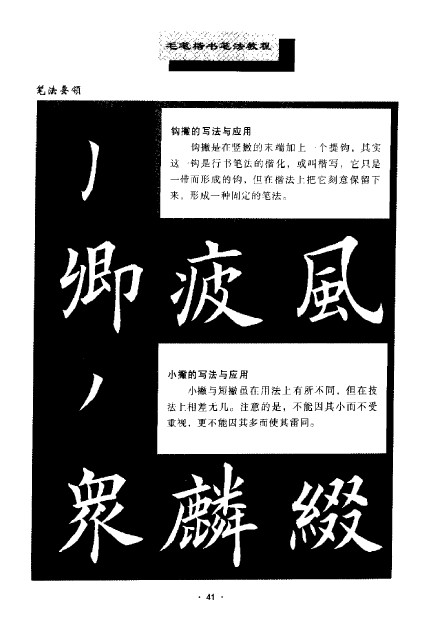 毛笔楷书笔法教程
笔法要领
钩撇的写法与应用
钩撇是在竖撇的末端加上一个提钩，其实
这一钩是行书笔法的楷化，或叫楷写，它只是
一带而形成的钩，但在楷法上把它刻意保留下
来，形成一种固定的笔法。
卿 疲 風
小撇的写法与应用
小撇与短撇虽在用法上有所不同，但在技
法上相差无几。注意的是，不能因其小而不受
重视，更不能因其多而使其雷同。
眾 麟 綴
· 41 ·